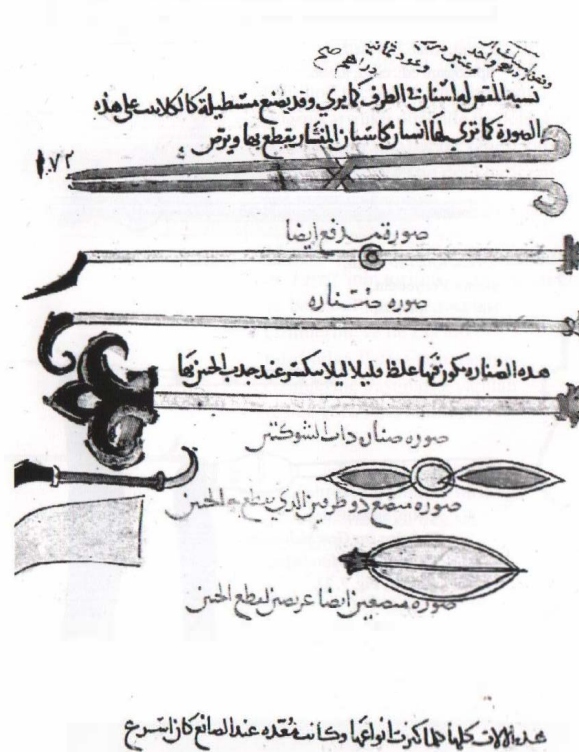 نسبه المقص له اسنان ٯ الطرف كما يرى وقد يصنع مستطيلة كالكلاليب على هذه
الصورة كما ترى لها اسنان كاسنان المنشار يقطع بها ويرض
٧٢
صورة مدفع ايضا
صوره صنناره
هده الصناره يكون فيها غلظ قليلا ليلا ىىكسر عند جدب الجنين بها
صوره صناره دات الشوكتين
صوره مبضع دو طرفين الدي يقطع به الجنين
صوره مبضعين ايضا عريضين لقطع الجنين
هده الالات كلها كلما كثرت انواعها وكانت معده عند الصانع كان اسرع